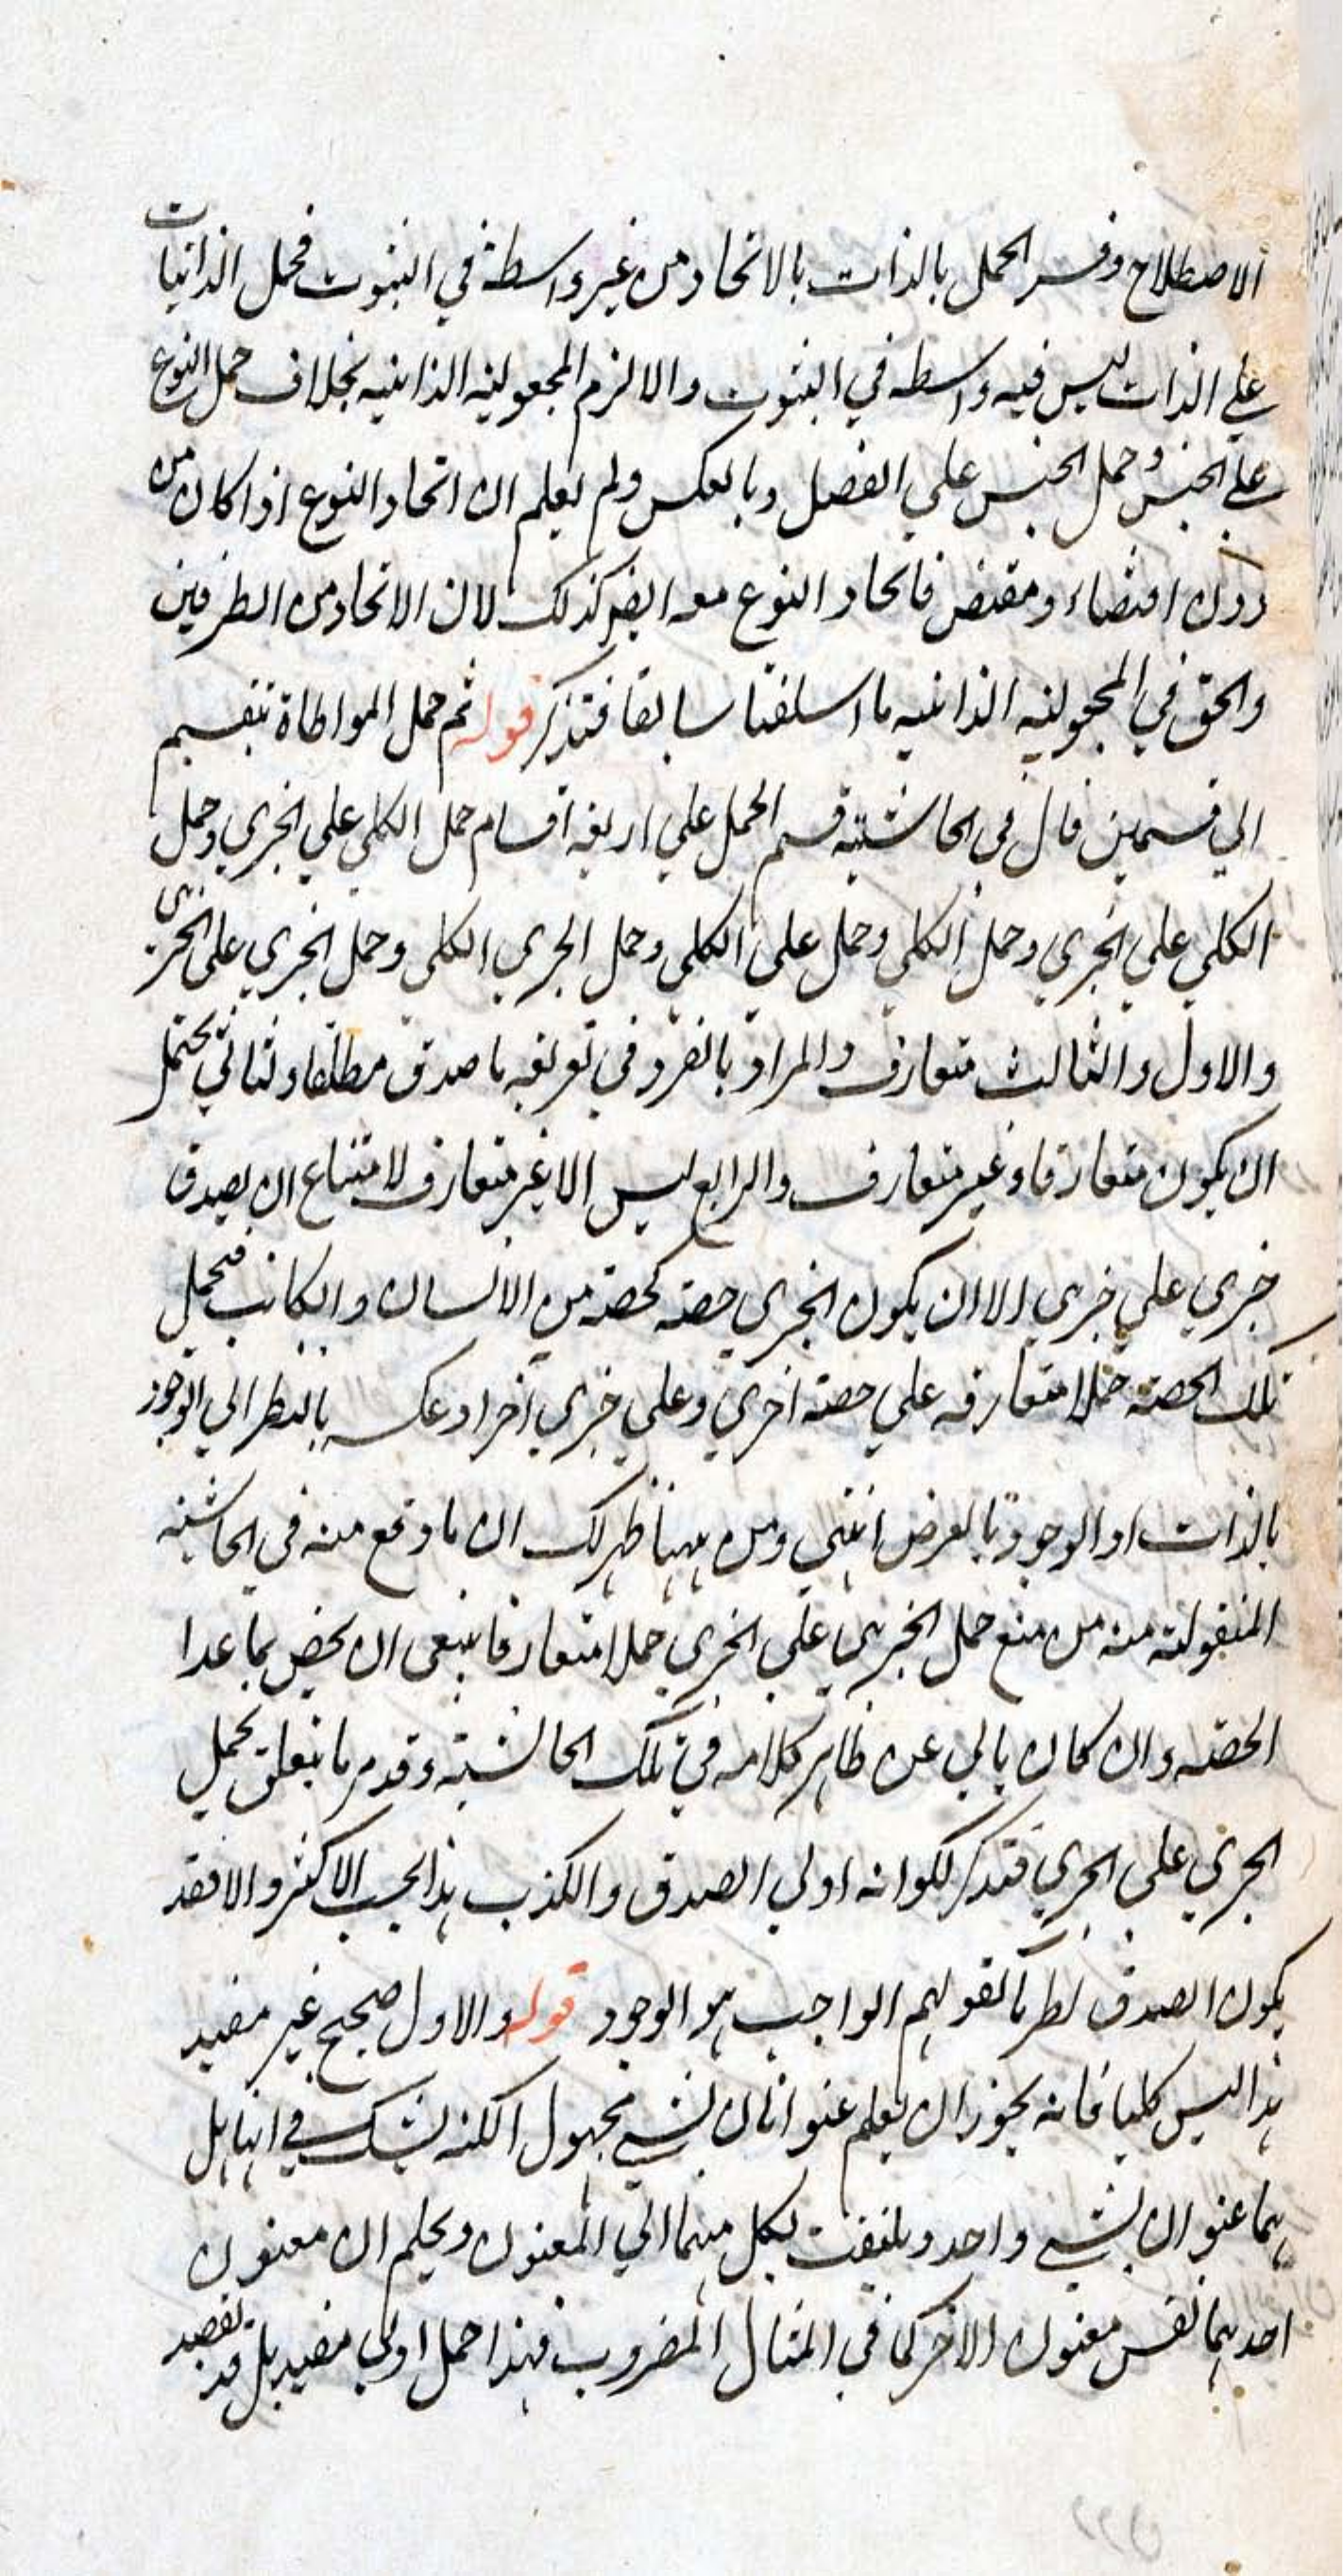 الاصطلاح وفسر الحمل بالذات بالاتحاد من غير واسطة في الثبوت فحمل الذاتيات
علي الذات ليس فيه واسطه في الثبوت والا لزم المجعوليه الذاتيه بخلاف حمل النوع
علي الجنس وحمل الجنس علي الفصل وبالعكس ولم يعلم ان اتحاد النوع اذا كان من
دون اقتضاء ومقتض فاتحاد النوع معه ايضا كذلك لان الاتحاد من الطرفين
والحق في المجعوليه الذاتيه ما اسلفنا سابقا فتذكر قوله ثم حمل المواطاة تنقسم
الي قسمين قال في الحاشيته قسم الحمل علي اربعة اقسام حمل الكلي علي الجزي وحمل
الكلي علي الجزي وحمل الكلي وحمل علي الكلي وحمل الجزي الكلي وحمل الجزي علي الجزي
والاول والثالث متعارف والمراد بالفرد في تعريفه ما صدق مطلقا وثاني يحتمل
ان يكون متعارفا وغير متعارف والرابع ليس الا غير متعارف لامتناع ان يصدق
جزي علي جزي الا ان يكون الجزي حصة كحصة من الانسان والكاتب فتحمل
تلك الحصة حملا متعارفه علي حصة اخري وعلي جزي آخر او عكسه بالنظر الي الوجود
بالذات او الوجود بالعرض انتهي ومن ههنا ظهر لك ان ما وقع منه في الحاشيته
المنقولته منه من منع حمل الجزي علي الجزي حملا متعارفا ينبغي ان يخص بما عدا
الحصته وان كان يابي عن ظاهر كلامه في تلك الحاشيته وقد مر ما يتعلق بحمل
الجزي علي الجزي فتذكر لكوانه اولي الصدق والكذب هذا بحسب الاكثر والا فقد
يكون الصدق نظريا كقولهم الواجب هو الوجود قوله والاول صحيح غير مفيد
هذا ليس كليا فانه يجوز ان يعلم عنوانان لشي مجهول الكنه يشك في انهما هل
هما عنوان لشي واحد ويلتفت بكل منهما الي المعنون ويحكم ان معنون
احدهما نفس معنون الاخر كما في المثال المضروب فهذا حمل اولي مفيد بل قد يقصد